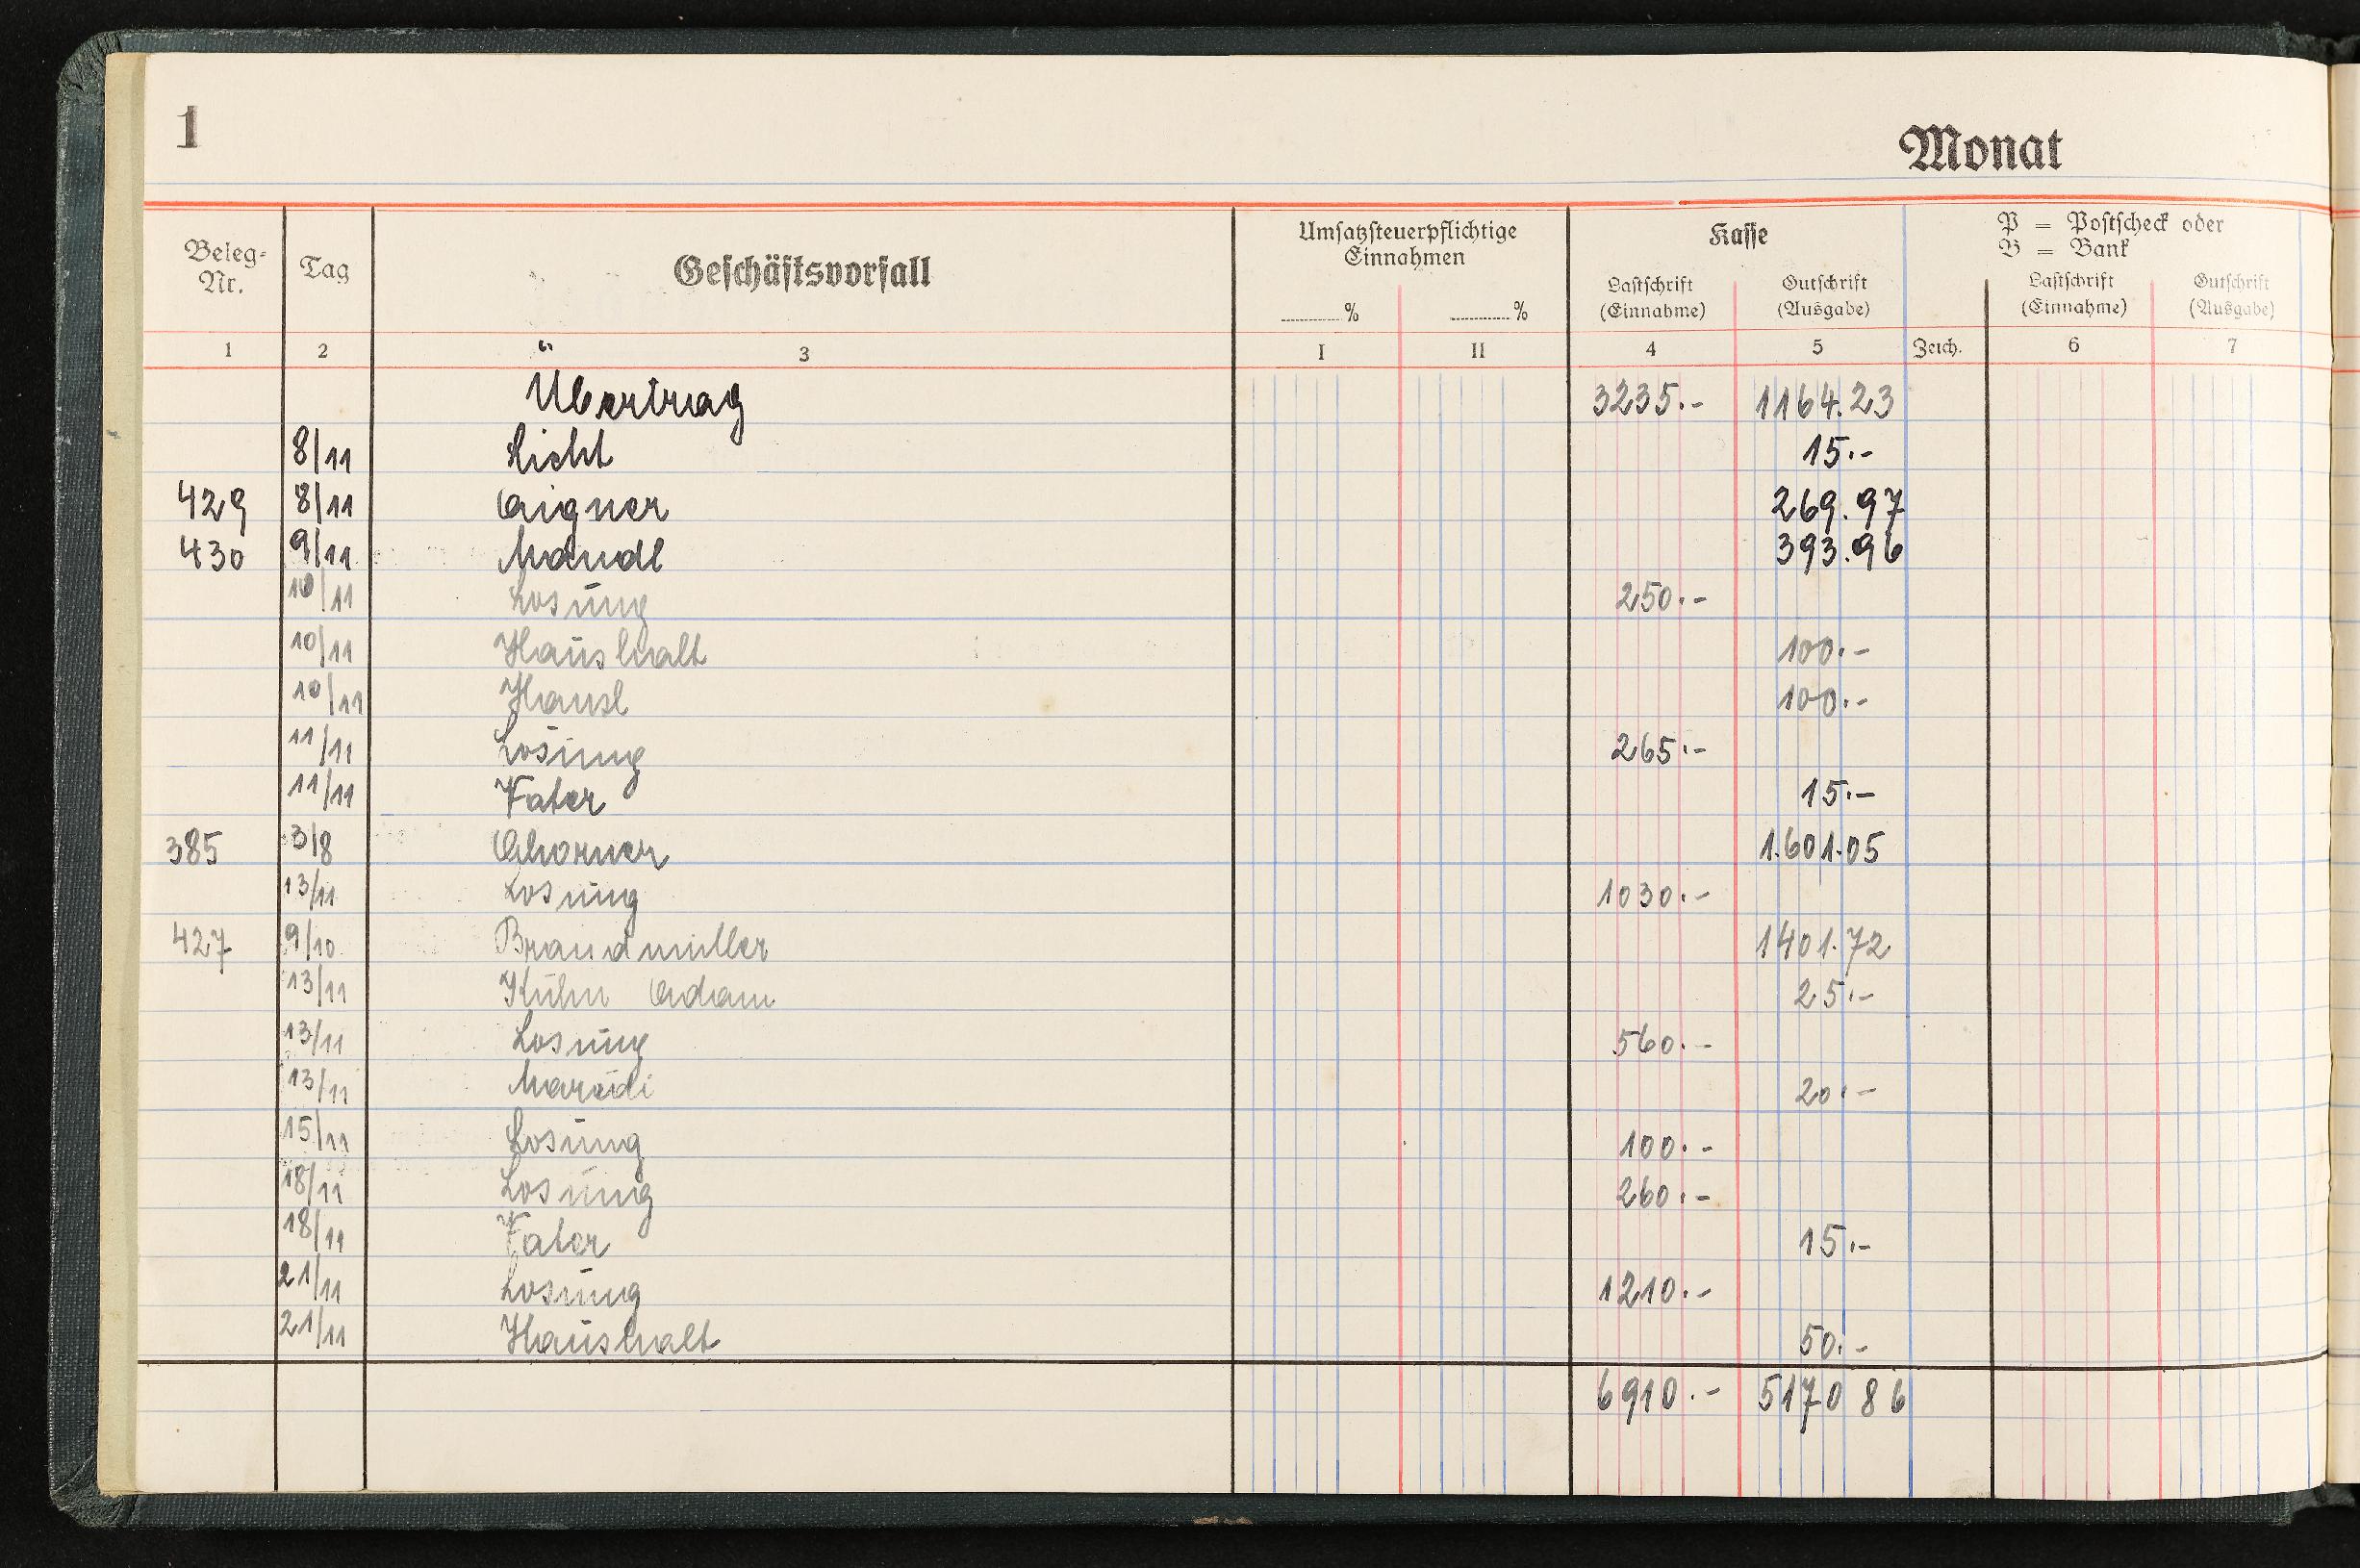 1
Monat
Beleg-Nr. Tag Geschäftsvorfall Umsatzsteuerpflichtige Einnahmen Kasse P = Postscheck oder B = Bank
% % Lastschrift (Einnahme) Gutschrift (Ausgabe) Lastschrift (Einnahme) Gutschrift (Ausgabe)
1 2 3 I II 4 5 Zeich. 6 7
Übertrag 3235.- 1164.23
8/11 Licht 15.-
429 8/11 Aigner 269.97
430 9/11 Mandl 393.96
10/11 Losung 250.-
10/11 Haushalt 100.-
10/11 Hansl 100.-
11/11 Losung 265.-
11/11 Vater 15.-
385 3/8 1.601.05
13/11 Losung 1030.-
427 9/10 Brandmüller 1401.72
13/11 Kühn Adam 25.-
13/11 Losung 560.-
13/11 20.-
15/11 Losung 100.-
18/11 Losung 260.-
18/11 Vater 15.-
21/11 Losung 1210.-
21/11 Haushalt 50.-
6910.- 5170 86